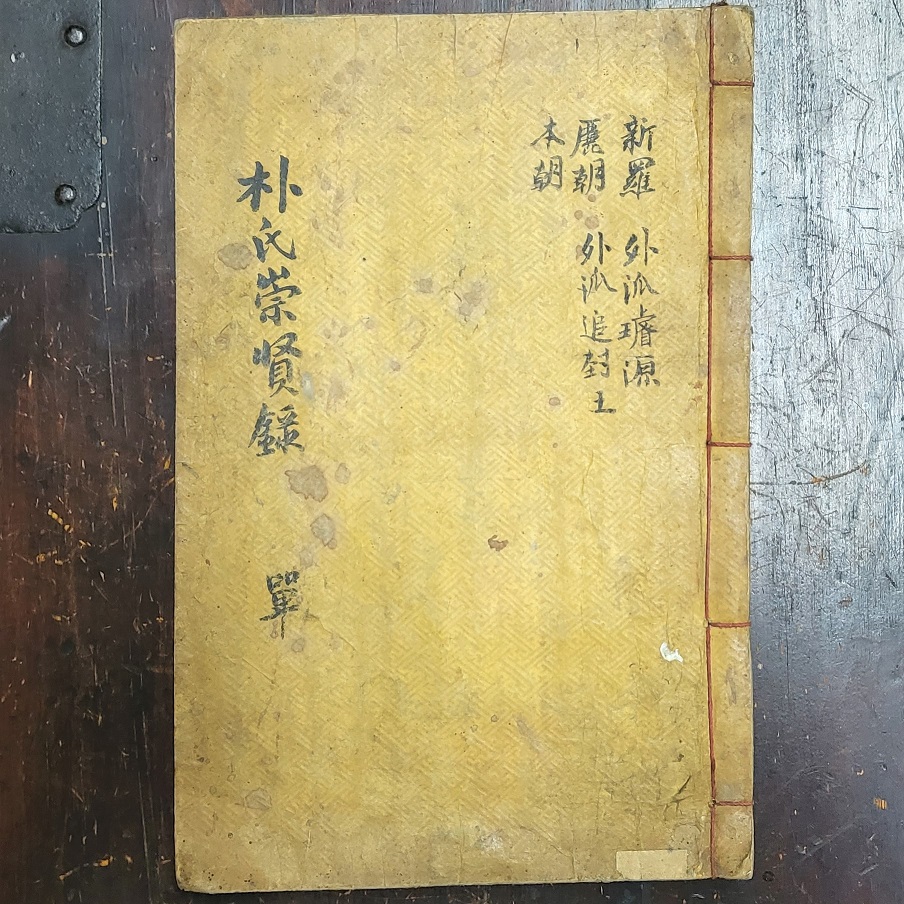 新羅 外派璿源
麗朝 外派追封王
本朝
朴氏崇賢錄 單